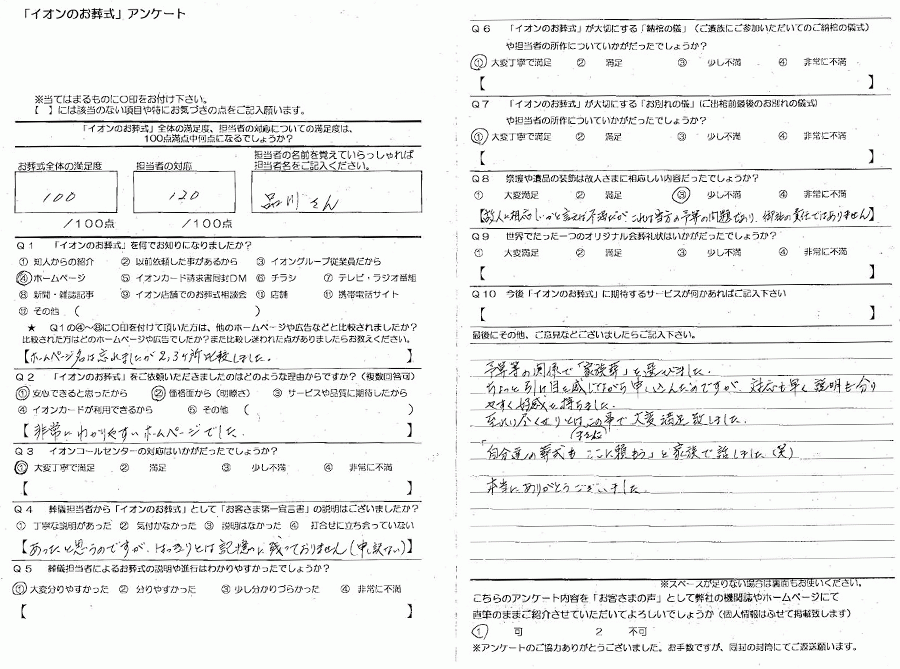 「イオンのお葬式」アンケート
※当てはまるものに○印をお付け下さい。
【　】には該当のない項目や特にお気づきの点をご記入願います。
「イオンのお葬式」全体の満足度、担当者の対応についての満足度は、
100点満点中何点になるでしょうか?
お葬式全体の満足度
担当者の対応
担当者の名前を覚えていらっしゃれば
担当者名をご記入ください。
100
120
品川さん
/100点
/100点
Q1　「イオンのお葬式」を何でお知りになりましたか?
① 知人からの紹介　② 以前依頼した事があるから　③ イオングループ従業員だから
④ ホームページ　⑤ イオンカード請求書同封DM　⑥ チラシ　⑦ テレビ・ラジオ番組
⑧ 新聞・雑誌記事　⑨ イオン店舗でのお葬式相談会　⑩ 店舗　⑪ 携帯電話サイト
⑫ その他（　　　）
★　Q1の④~⑧に○印を付けて頂いた方は、他のホームページや広告などと比較されましたか?
比較された方はどのホームページや広告でしたか?また比較し迷われた点がありましたらお教えください。
【ホームページ名は忘れましたが2,3ヶ所比較しました。】
Q2　「イオンのお葬式」をご依頼いただきましたのはどのような理由からですか?（複数回答可）
① 安心できると思ったから　② 価格面から（明瞭さ）　③ サービスや品質に期待したから
④ イオンカードが利用できるから　⑤ その他（　　　）
【非常にわかりやすいホームページでした。】
Q3　イオンコールセンターの対応はいかがだったでしょうか?
① 大変丁寧で満足　② 満足　③ 少し不満　④ 非常に不満
【　】
Q4　葬儀担当者から「イオンのお葬式」として「お客さま第一宣言書」の説明はございましたか?
① 丁寧な説明があった　② 気付かなかった　③ 説明はなかった　④ 打合せに立ち会っていない
【あったと思うのですが、はっきりとは記憶に残っておりません（申訳ない）】
Q5　葬儀担当者によるお葬式の説明や進行はわかりやすかったでしょうか?
① 大変分りやすかった　② 分りやすかった　③ 少し分かりづらかった　④ 非常に不満
【　】
Q6　「イオンのお葬式」が大切にする「納棺の儀」（ご遺族にご参加いただいてのご納棺の儀式）
や担当者の所作についていかがだったでしょうか?
① 大変丁寧で満足　② 満足　③ 少し不満　④ 非常に不満
【　】
Q7　「イオンのお葬式」が大切にする「お別れの儀」（ご出棺前最後のお別れの儀式）
や担当者の所作についていかがだったでしょうか?
① 大変丁寧で満足　② 満足　③ 少し不満　④ 非常に不満
【　】
Q8　祭壇や遺品の装飾は故人さまに相応しい内容だったでしょうか?
① 大変満足　② 満足　③ 少し不満　④ 非常に不満
【故人に相応しいかと言えば不満だが、これは当方の予算の問題であり、御社の責任ではありません】
Q9　世界でたった一つのオリジナル会葬礼状はいかがだったでしょうか?
① 大変満足　② 満足　③ 少し不満　④ 非常に不満
【　】
Q10　今後「イオンのお葬式」に期待するサービスが何かあればご記入下さい
【　】
最後にその他、ご意見などございましたらご記入下さい。
予算等の関係で「家族葬」を選びました。
ちょっと引け目を感じながら申し込んだのですが、対応も早く説明も分り
やすく好感を持ちました。
至れり尽くせりとはこの事で大変満足致しました。
「自分達の葬式もここに頼もう」と家族で話しました（笑）
本当にありがとうございました。
※スペースが足りない場合は裏面もお使いください。
こちらのアンケート内容を「お客さまの声」として弊社の機関誌やホームページにて
直筆のままご紹介させていただいてよろしいでしょうか（個人情報はふせて掲載致します）
1　可　　2　不可
※アンケートのご協力ありがとうございました。お手数ですが、同封の封筒にてご返送願います。